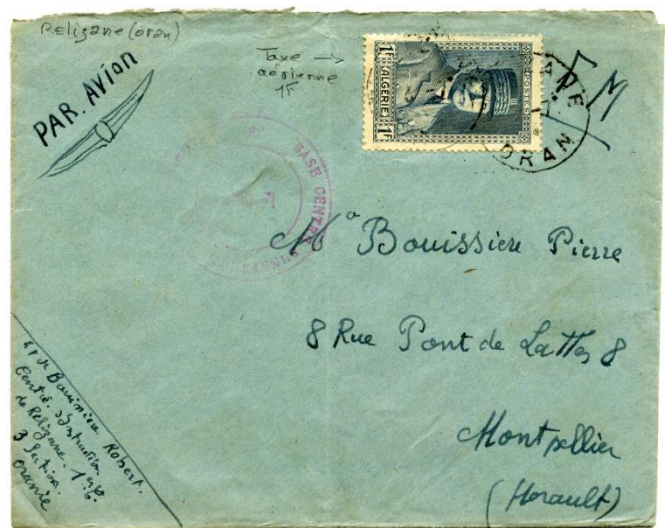 Relizane (oran)
Taxe →
aérienne
1F
PAR. AVION
1F
ALGERIE
1F
POSTES
ANE
ORAN
FM
BASE CENTR
Mr Bouissiere Pierre
8 Rue Pont de Lattes 8
Montpellier
(Herault)
Robert.
Centre. d'Instruction
de Relizane. 1re
3 Section.
Oranie